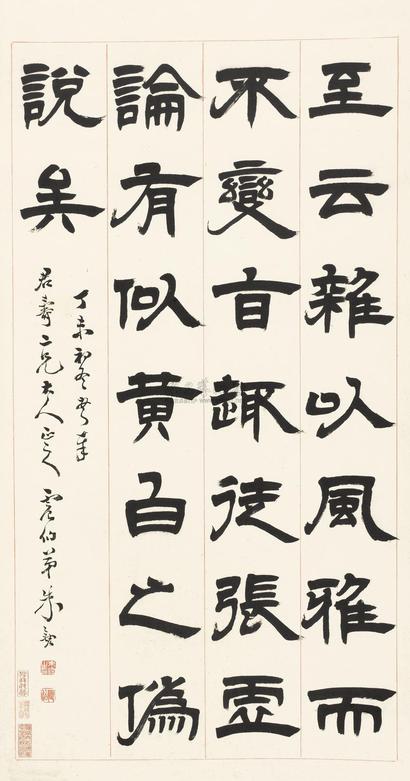 至云雜以風雅而
不變旨趣徒張虛
論有似黃白之偽
說矣
丁未初冬書奉
君壽二兄大人正之 震伯弟朱